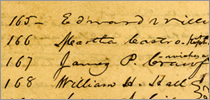 165- Edward
166 Martha Castro.
167 James P. Craw
168 William H. Hall